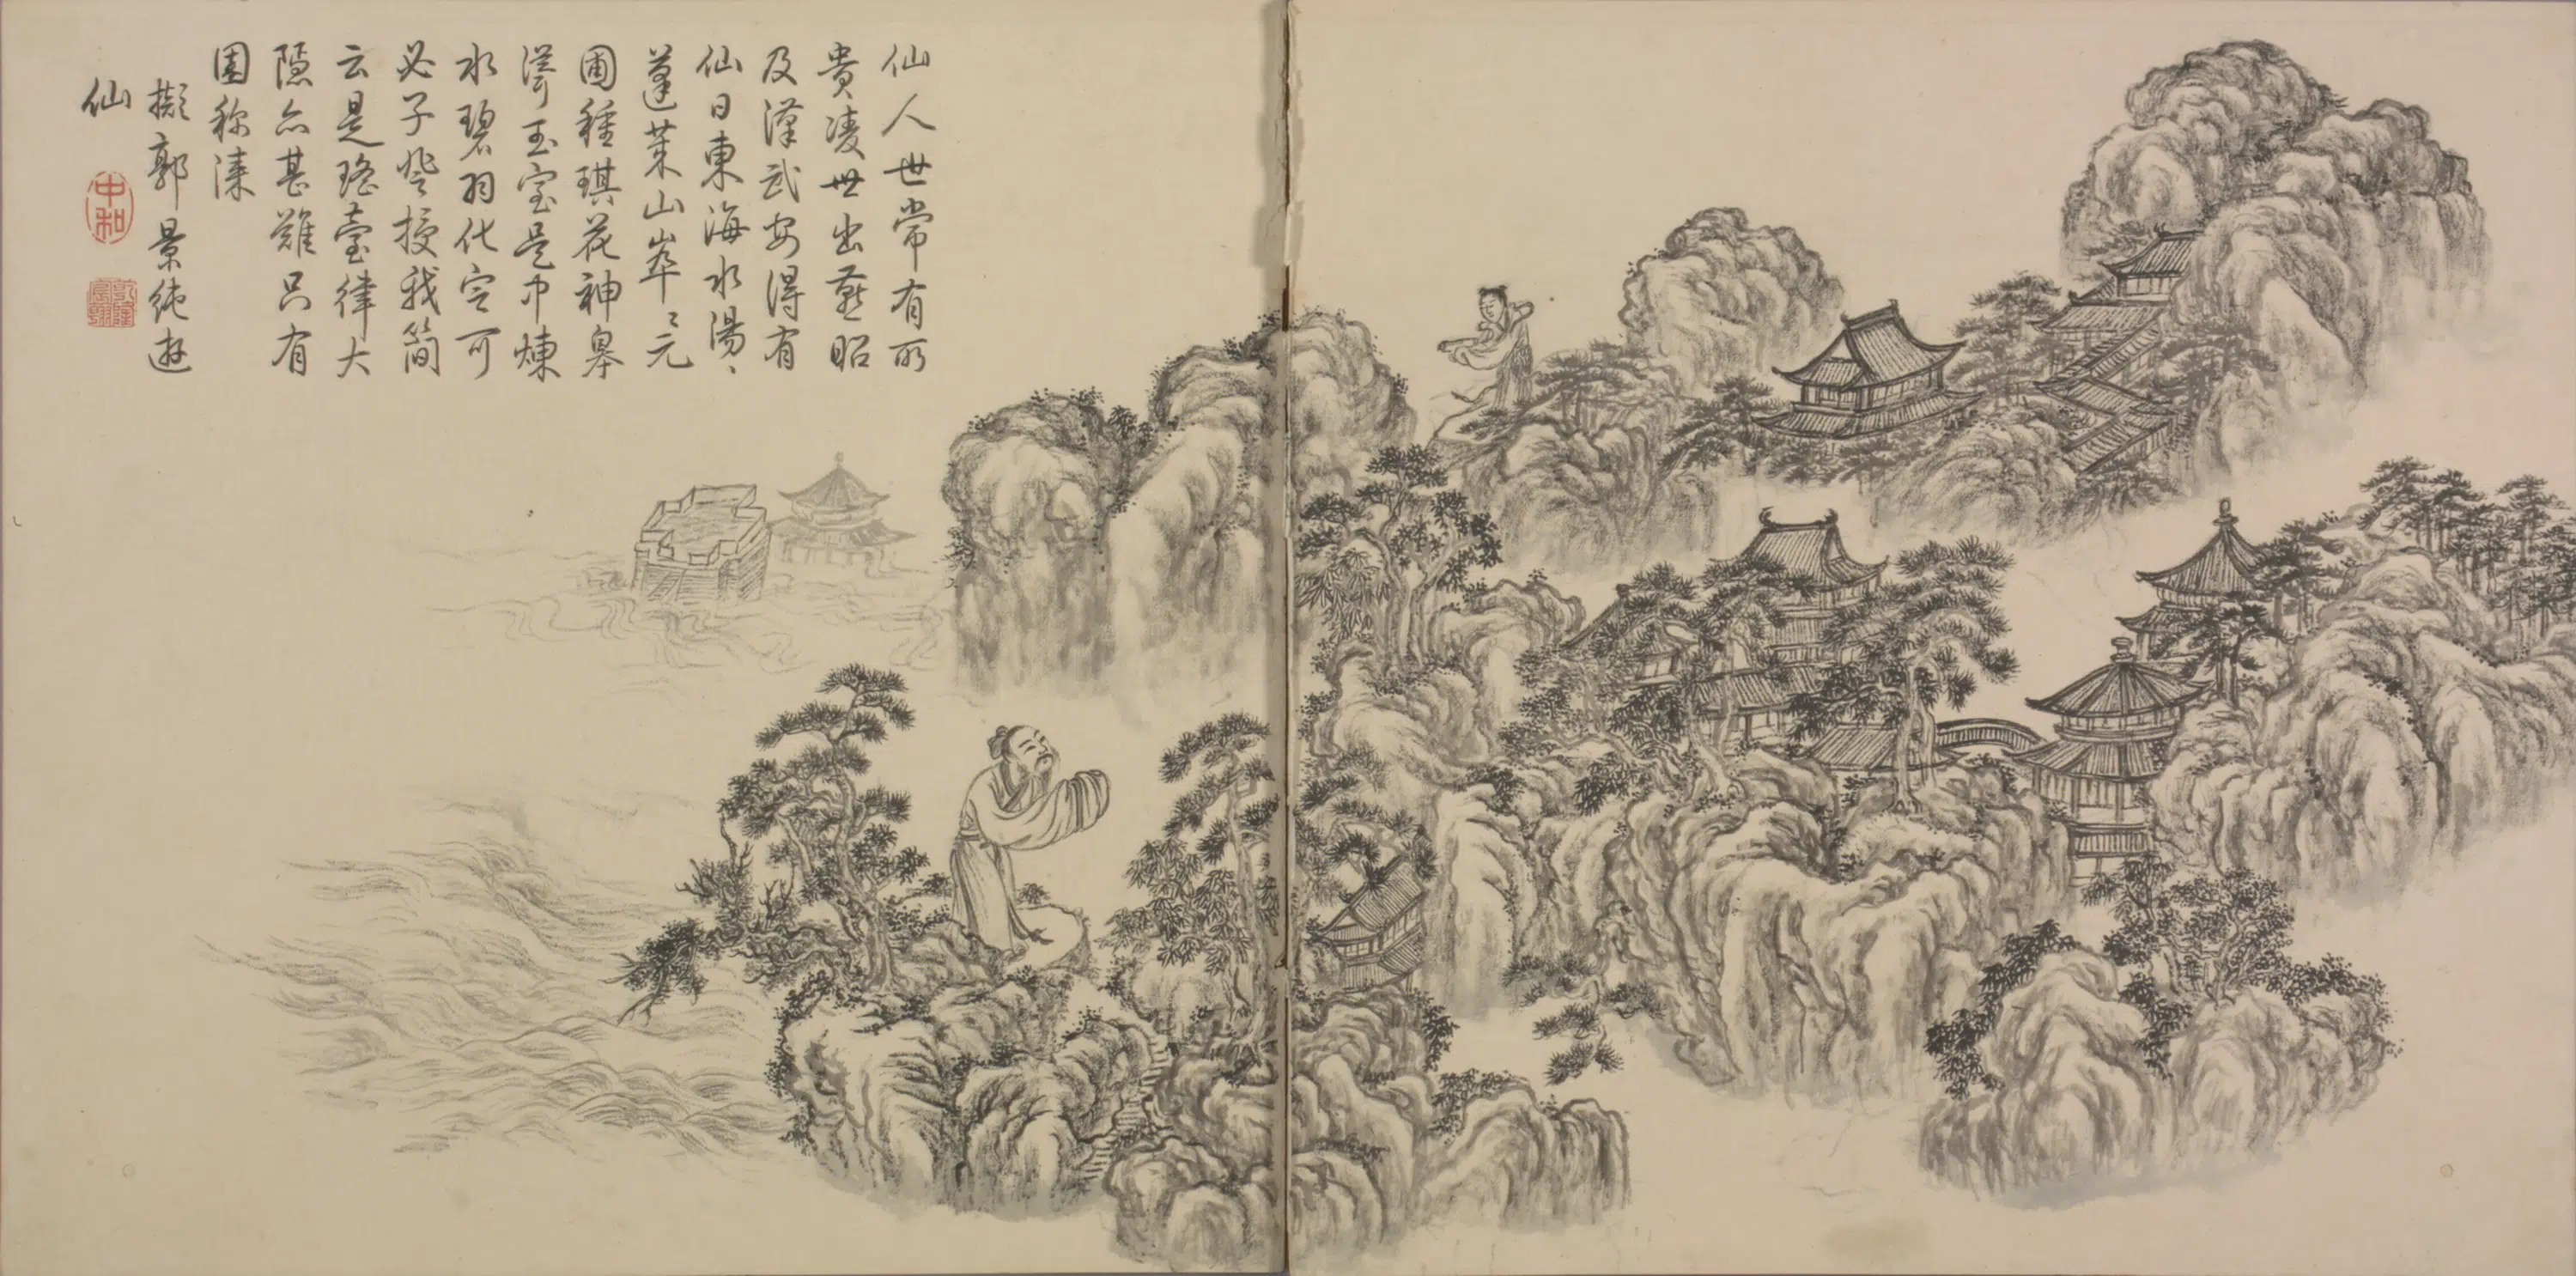 仙人世常有所
貴凌世出燕昭
及漢武安得有
仙日東海水湯〻
蓬萊山崒〻元
圃種琪花神皋
聳玉室是中煉
水碧羽化定可
必子登授我簡
云是瑤臺律大
隱亦甚難只有
園稱漆
擬郭景純遊
仙
中和
乾隆宸翰